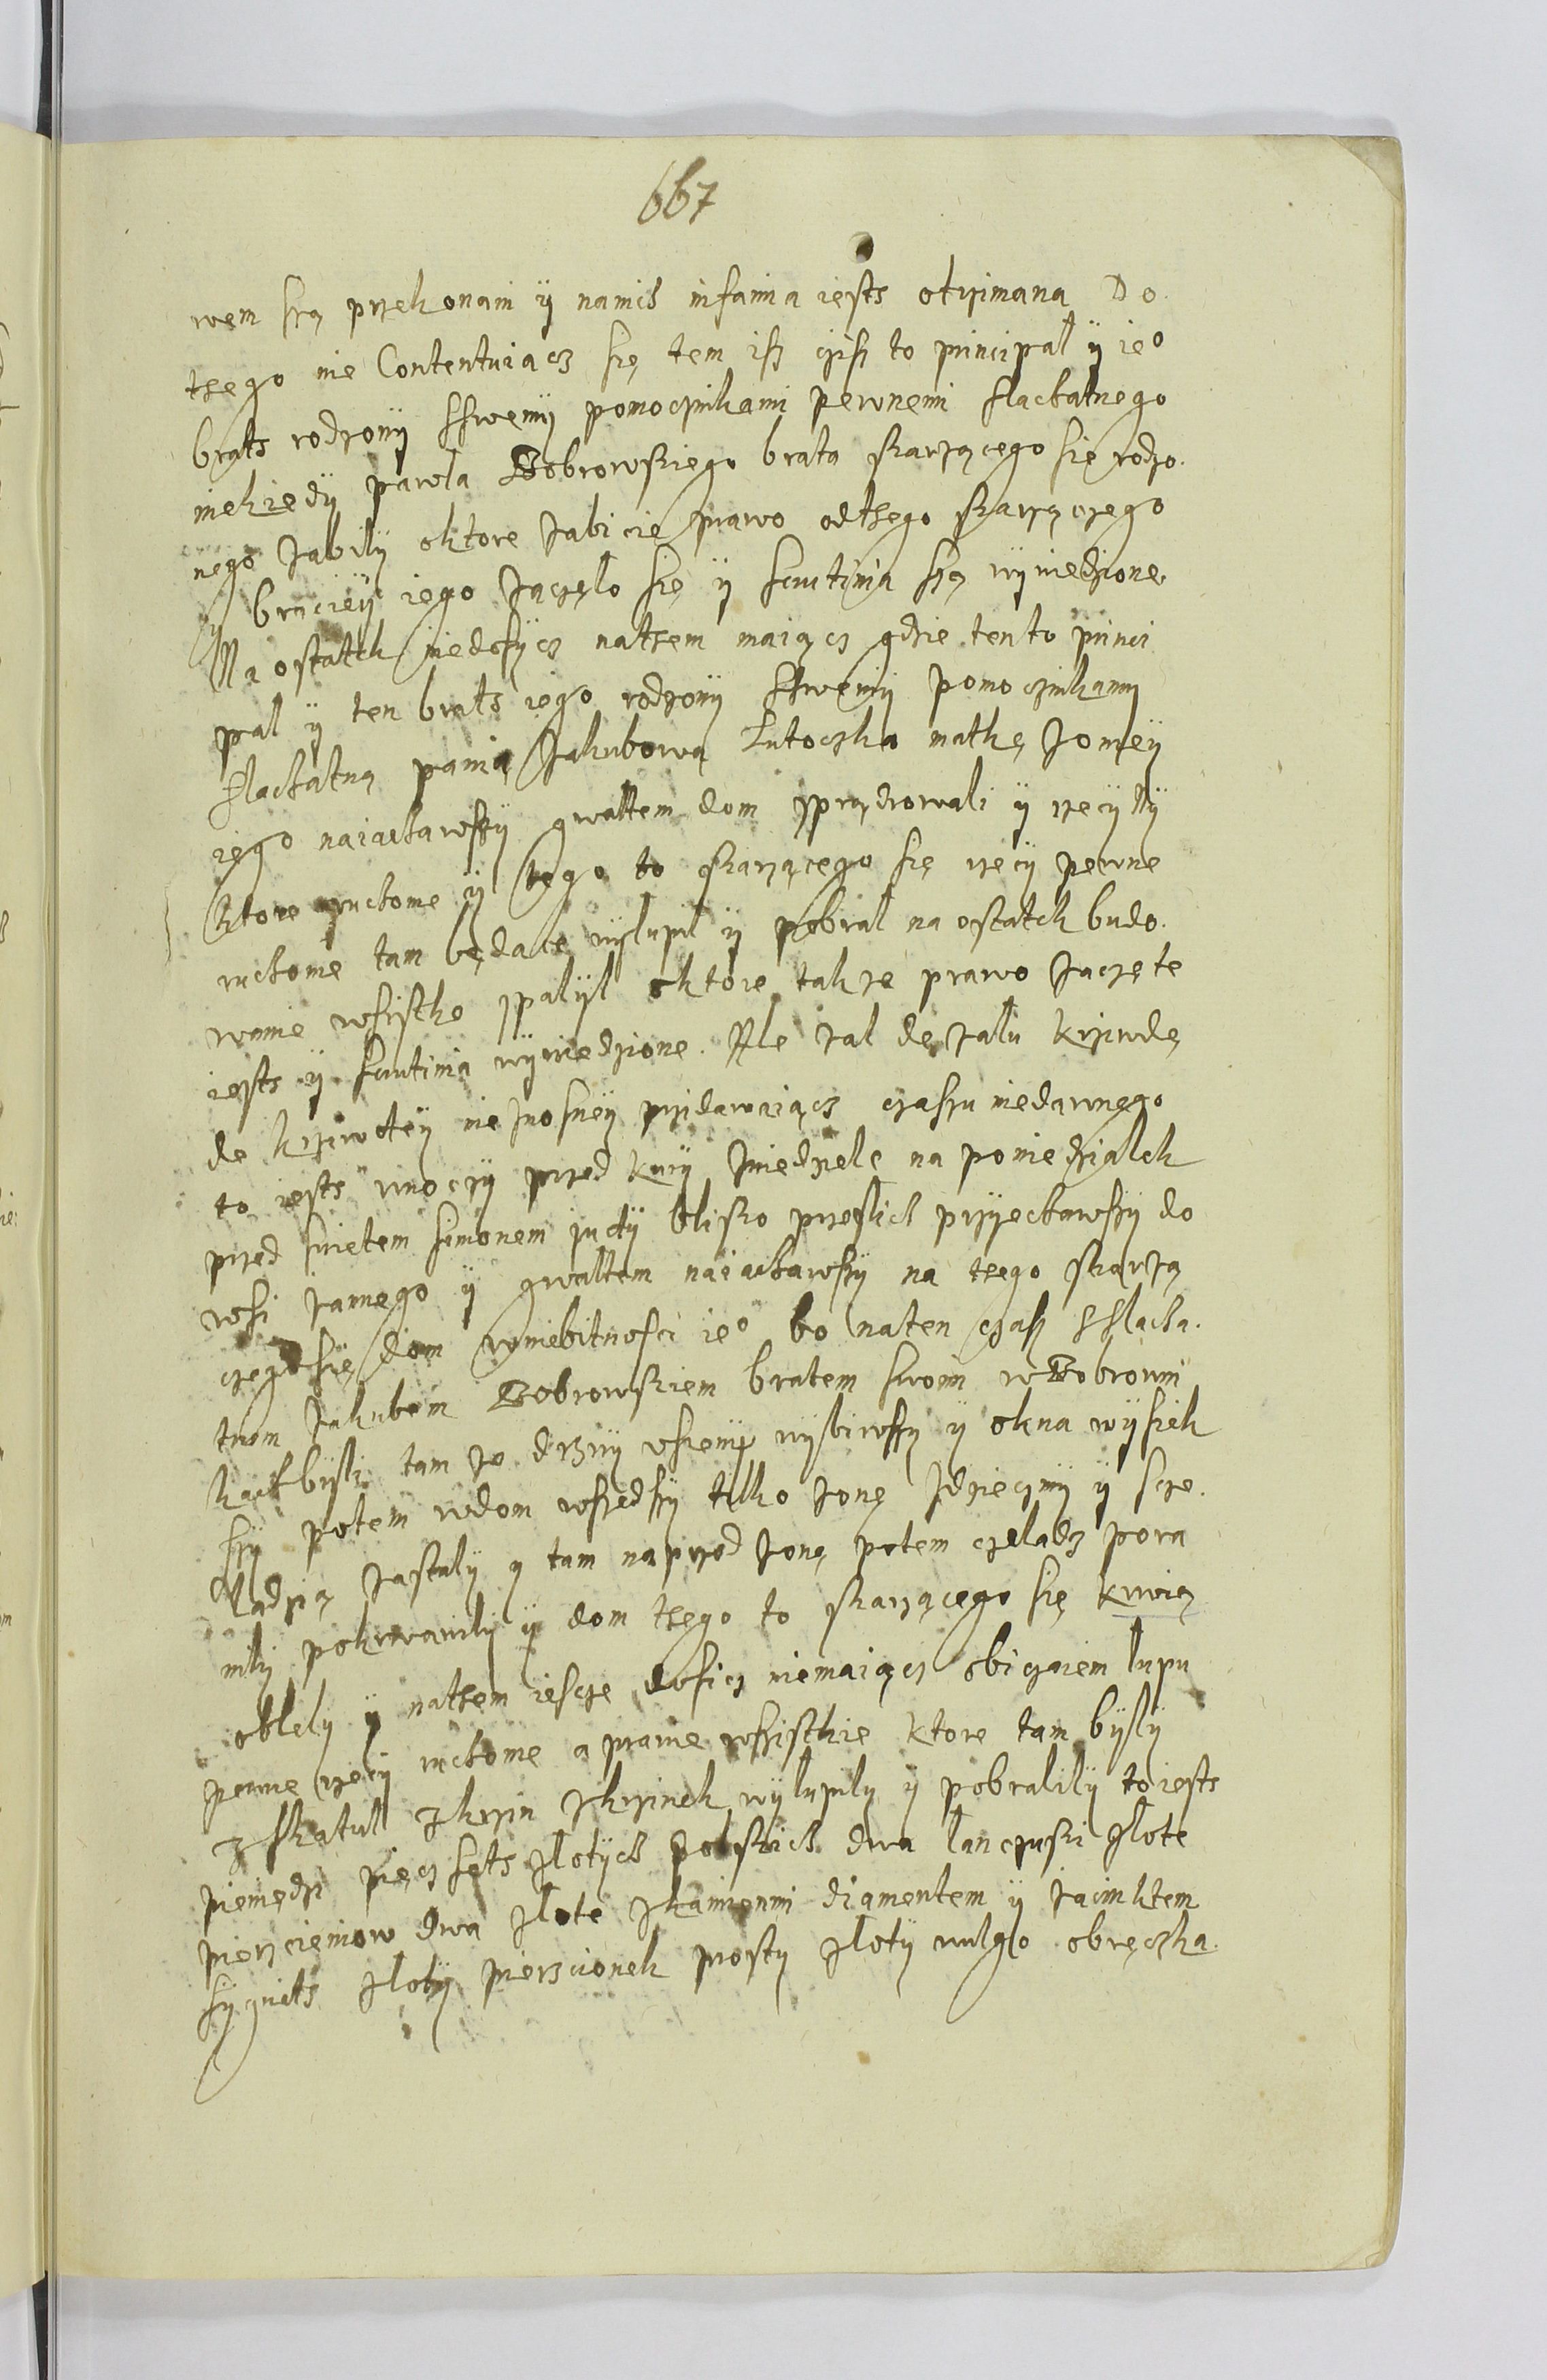 667
wem szą przekonani y namich infamia iests otrzimana Do
thego nie Contentuiacz się tem isz czisz to principal y ie⁰
brats rodzony sswemy pomocznikami pewnemi slachatnego
niekiedy pawla Bobrowskiego brata skarzącego sie rodzo.
nego zabily oktore zabicie prawo odthego skarzączego
y braciey iego zaczęlo się y scrutinia szą wywiedzione
Na ostatek niedosycz nathem maiącz gdzie tento princi
pal y ten brats iego rodzony sswemy pomocznikamy
slachatną panią Jakubową Lutoczka matkę zoniey
iego naiachawszy gwaltem dom zprądrowali y rzeczylly
ktore ruchome y tego to skarzącego się rzeczy pewne
ruchome tam będace wylupil y pobral na ostatek budo.
wanie wszystko zpalyl oktore takze prawo zaczęte
iests y scrutinia wywiedzione. Ale zal de zalu krziwdę
de krziwdey nieznosney przidawaiącz czaszu niedawnego
to iests wnoczy przed kury zniedziele na poniedzialek
przed swietem simonem judy blisko przeslich przyechawszy do
wsi zarnego y gwaltem naiachawszy na thego skarzą
czego się dom wniebitnosci ie⁰ bo naten czasz sslacha.
tnem Jakubem Bobrowskiem bratem swoim wBobrowni
kach byli tam ze drzwy wsieny wybiwszy y okna wysiek
szy potem wdom wszedszy tilko zonę zdzieczmy y scze.
ladzią zastaly y tam naprzod zonę potem czeladz pora
nily pokrwawily y dom thego to skarzącego się krwią
oblely y nathem iescze dosicz niemaiącz obiczaiem lupu
pewne rzeczy ruchome a prawie wszistkie ktore tam byly
zskatul zkrzin zkrzinek wylupily y pobralily to iests
pieniędzi pięczsets zlotych polskich dwa lanczuski zlote
pierzcieniow dwa zlote zkamienmi diamentem y jacinktem
sygnets zloty pierzcionek prosty zloty vulgo obrączka.